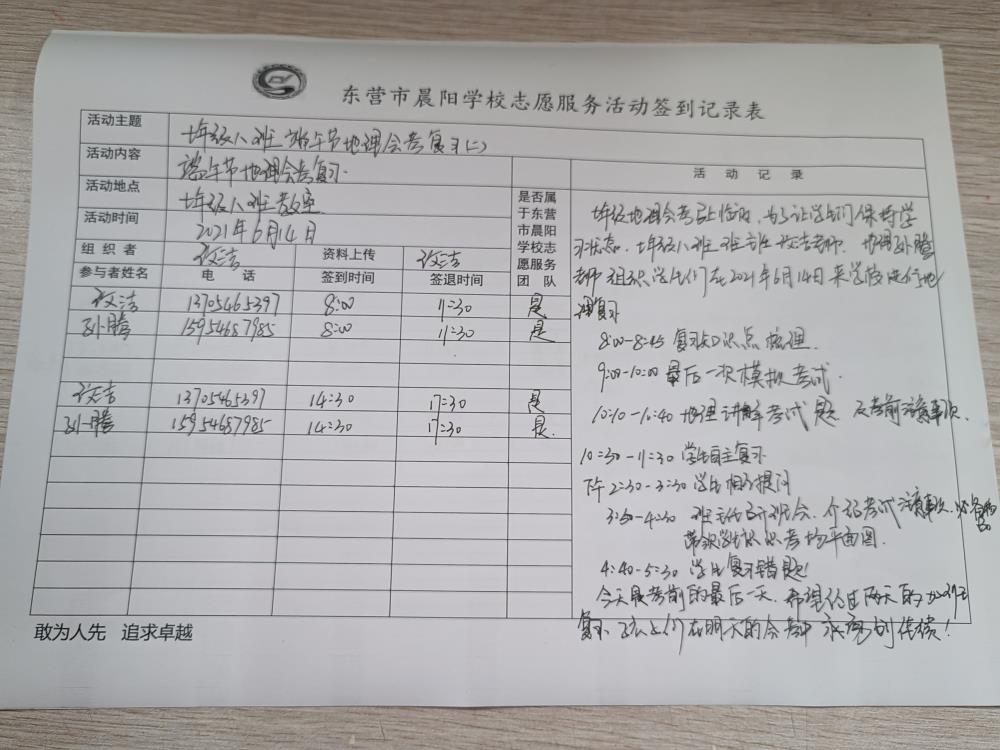 东营市晨阳学校志愿服务活动签到记录表
活动主题 七年级八班端午节地理会考复习(二)
活动内容 端午节地理会考复习
活动地点 七年级八班教室
活动时间 2021年6月14日
组织者 资料上传
参与者姓名 电话 签到时间 签退时间 是否属于东营市晨阳学校志愿服务团队
13705465397 8:00 11:30 是
孙腾 15954687985 8:00 11:30 是
13705465397 14:30 17:30 是
孙腾 15954687985 14:30 17:30 是
活动记录
七年级地理会考已上临近,为了让学生们保持学
习状态,七年级八班班主任 老师,地理孙腾
老师组织学生们在2021年6月14日来学校进行地
理复习
8:00-8:45 复习知识点梳理.
9:00-10:00 最后一次模拟考试.
10:10-10:40 地理讲解考试题 及考前注意事项
10:50-11:30 学生自主复习
下午2:30-3:30 学生相互提问
班主任召开班会,介绍考试注意事项,必备物品
带领学生认识考场平面图.
4:40-5:30 学生复习错题!
今天是考前的最后一天,希望经过两天的
复习 孩子们在明天的会考中 取得好成绩!
敢为人先 追求卓越